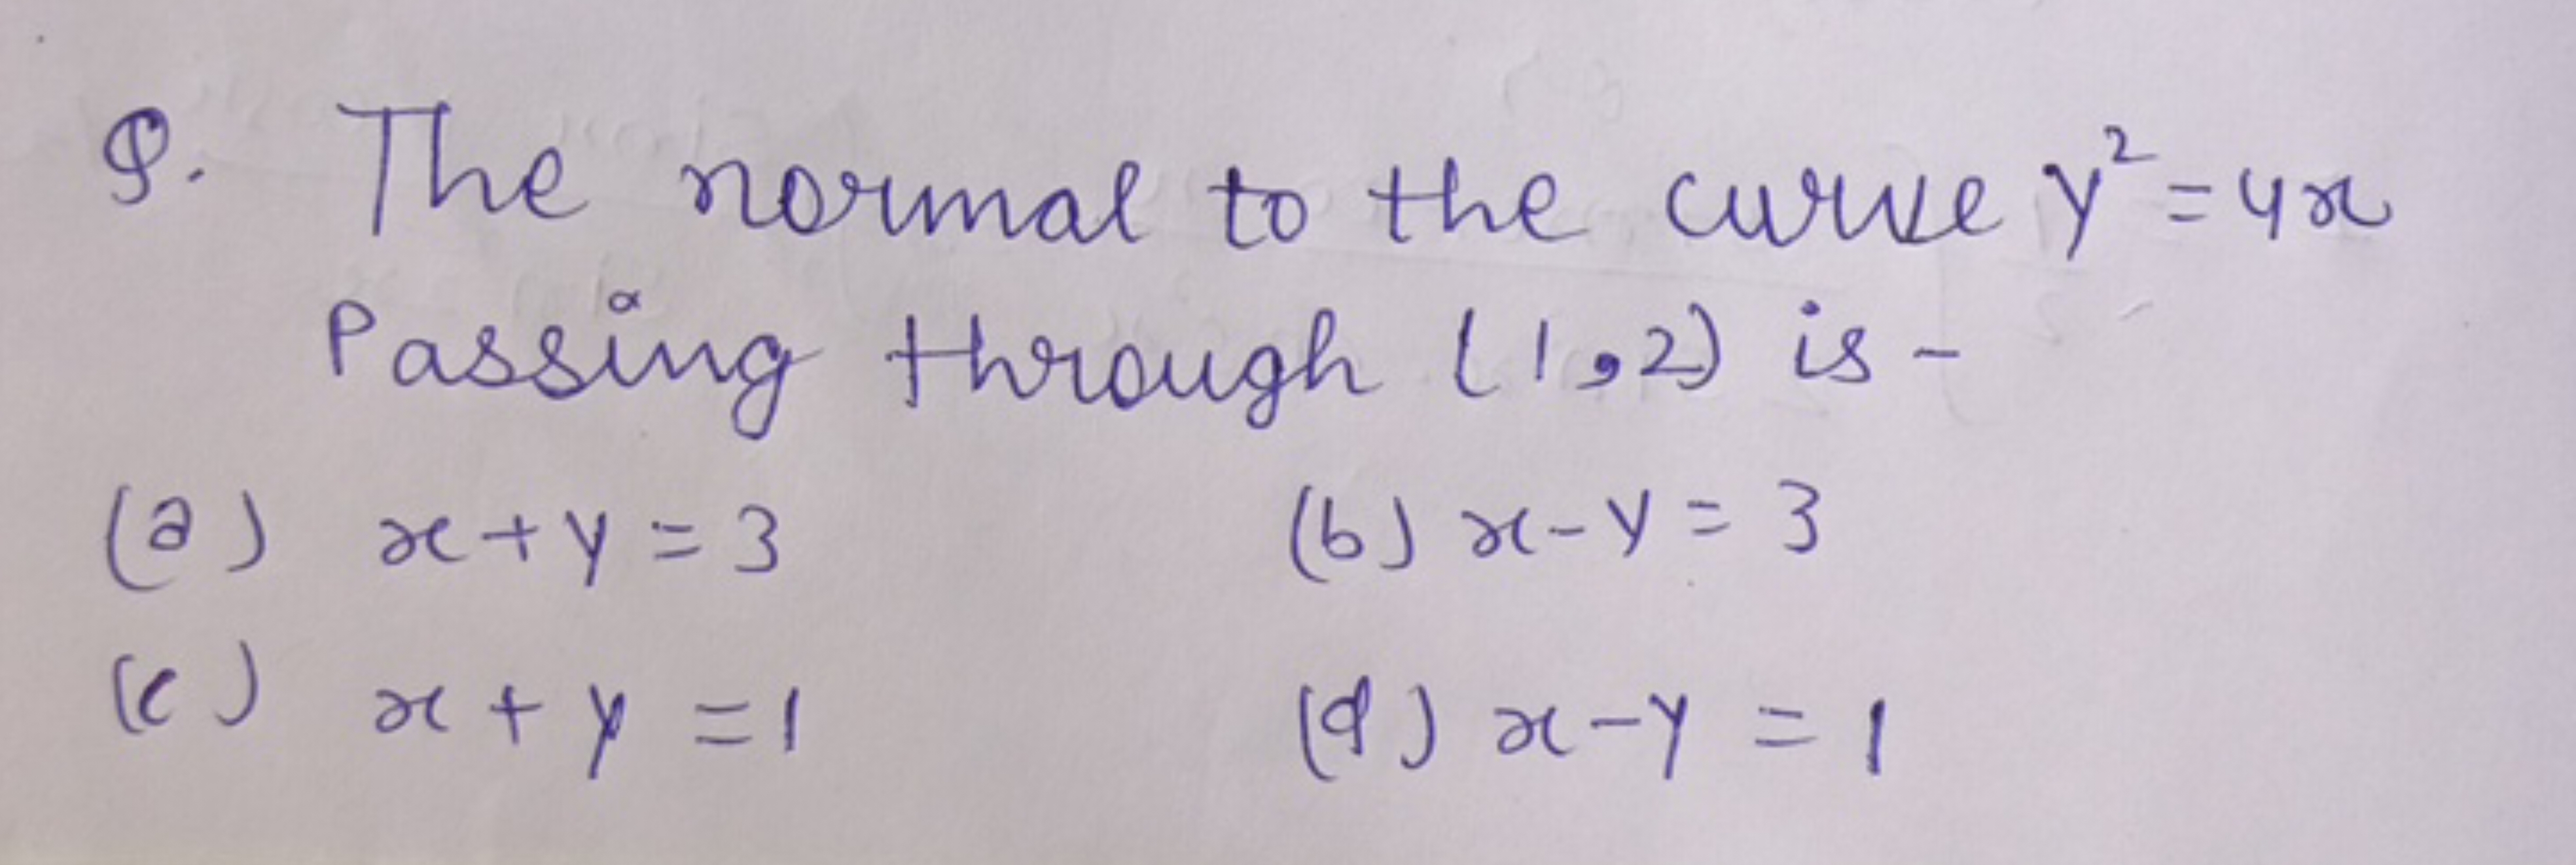 Q. The normal to the curve y² = 4x
Passing through (1,2) is -
(a) x + y = 3 (b) x - y = 3
(c) x + y = 1 (d) x - y = 1